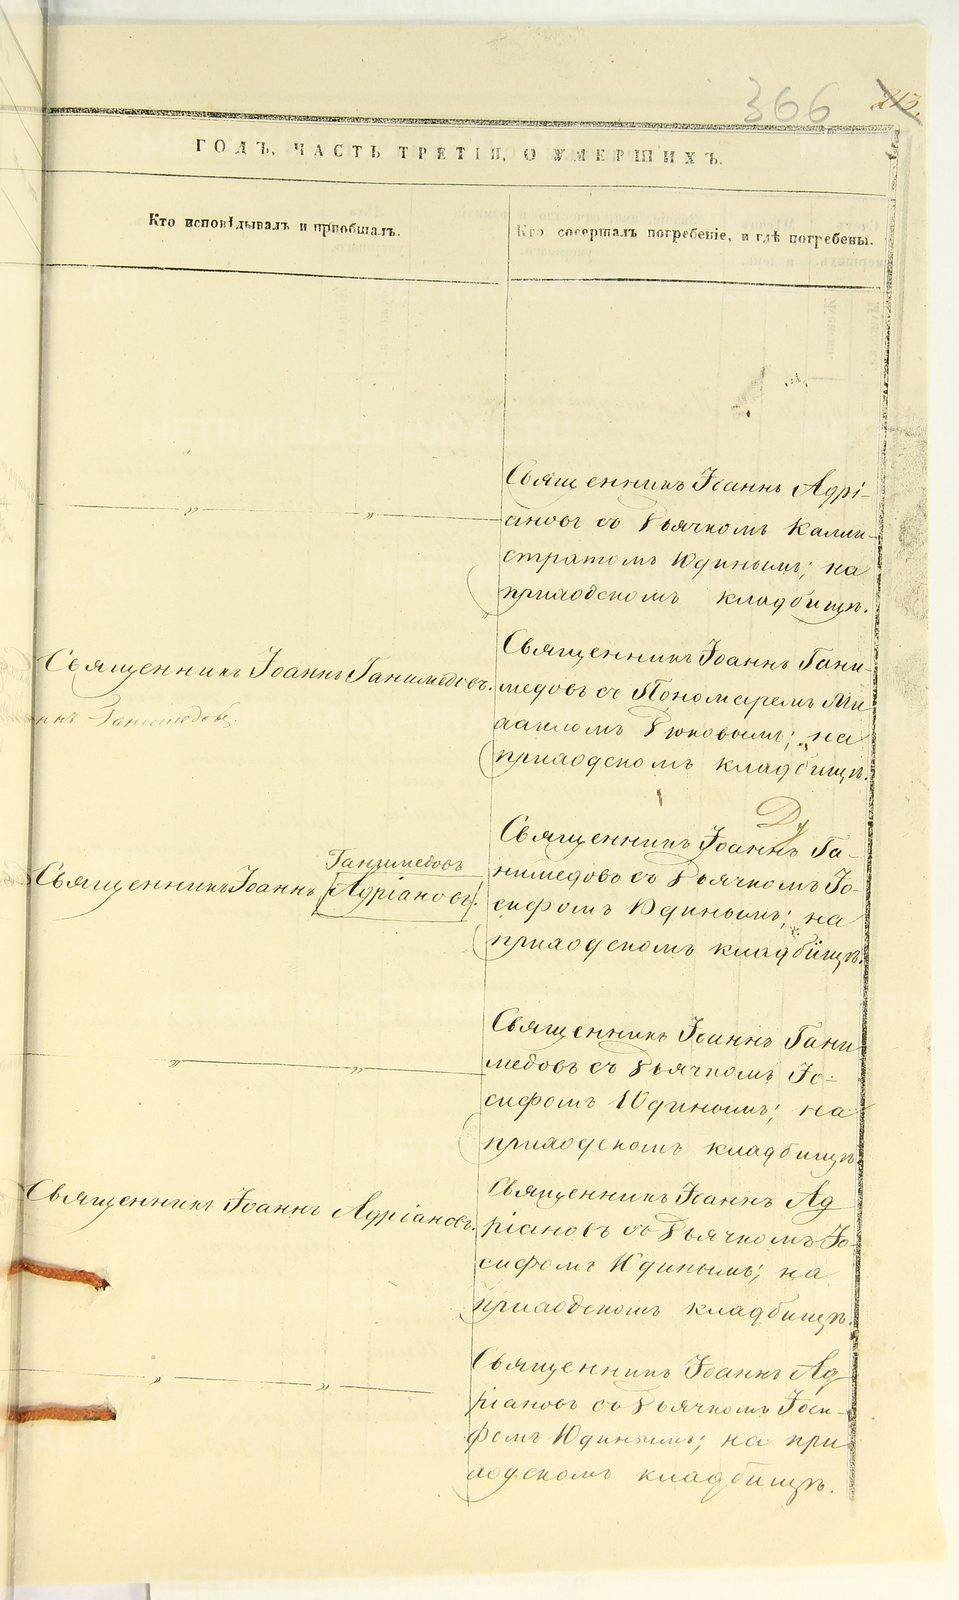 366
213.
ГОДЪ, ЧАСТЬ ТРЕТІЯ, О УМЕРШИХЪ.
Кто исповѣдывалъ и пріобщалъ.
Кто совершалъ погребеніе, и гдѣ погребены.
Священникъ Іоаннъ Адрі-
ановъ съ Дьячкомъ Калли-
стратомъ Юдинымъ; на
приходскомъ кладбищѣ.
Священникъ Іоаннъ Ганимедовъ.
нъ Ганимедовъ.
Священникъ Іоаннъ Гани-
медовъ съ Пономаремъ Ми
хаиломъ Дюковымъ; на
приходскомъ кладбищѣ.
Ганимедовъ
Священникъ Іоаннъ [Адріановъ].
Ду
Священникъ Іоаннъ Га-
нимедовъ съ Дьячкомъ Іо-
сифомъ Юдинымъ; на
приходскомъ кладбищѣ.
Священникъ Іоаннъ Гани
медовъ съ Дьячкомъ Іо-
сифомъ Юдинымъ; на
приходскомъ кладбищѣ.
Священникъ Іоаннъ Адріановъ.
Священникъ Іоаннъ Ад
ріановъ съ Дьячкомъ Іо-
сифомъ Юдинымъ; на
приходскомъ кладбищѣ.
Священникъ Іоаннъ Ад
ріановъ съ Дьячкомъ Іоси-
фомъ Юдинымъ; на при
ходскомъ кладбищѣ.
METRIKI.GASO-URAL.RU